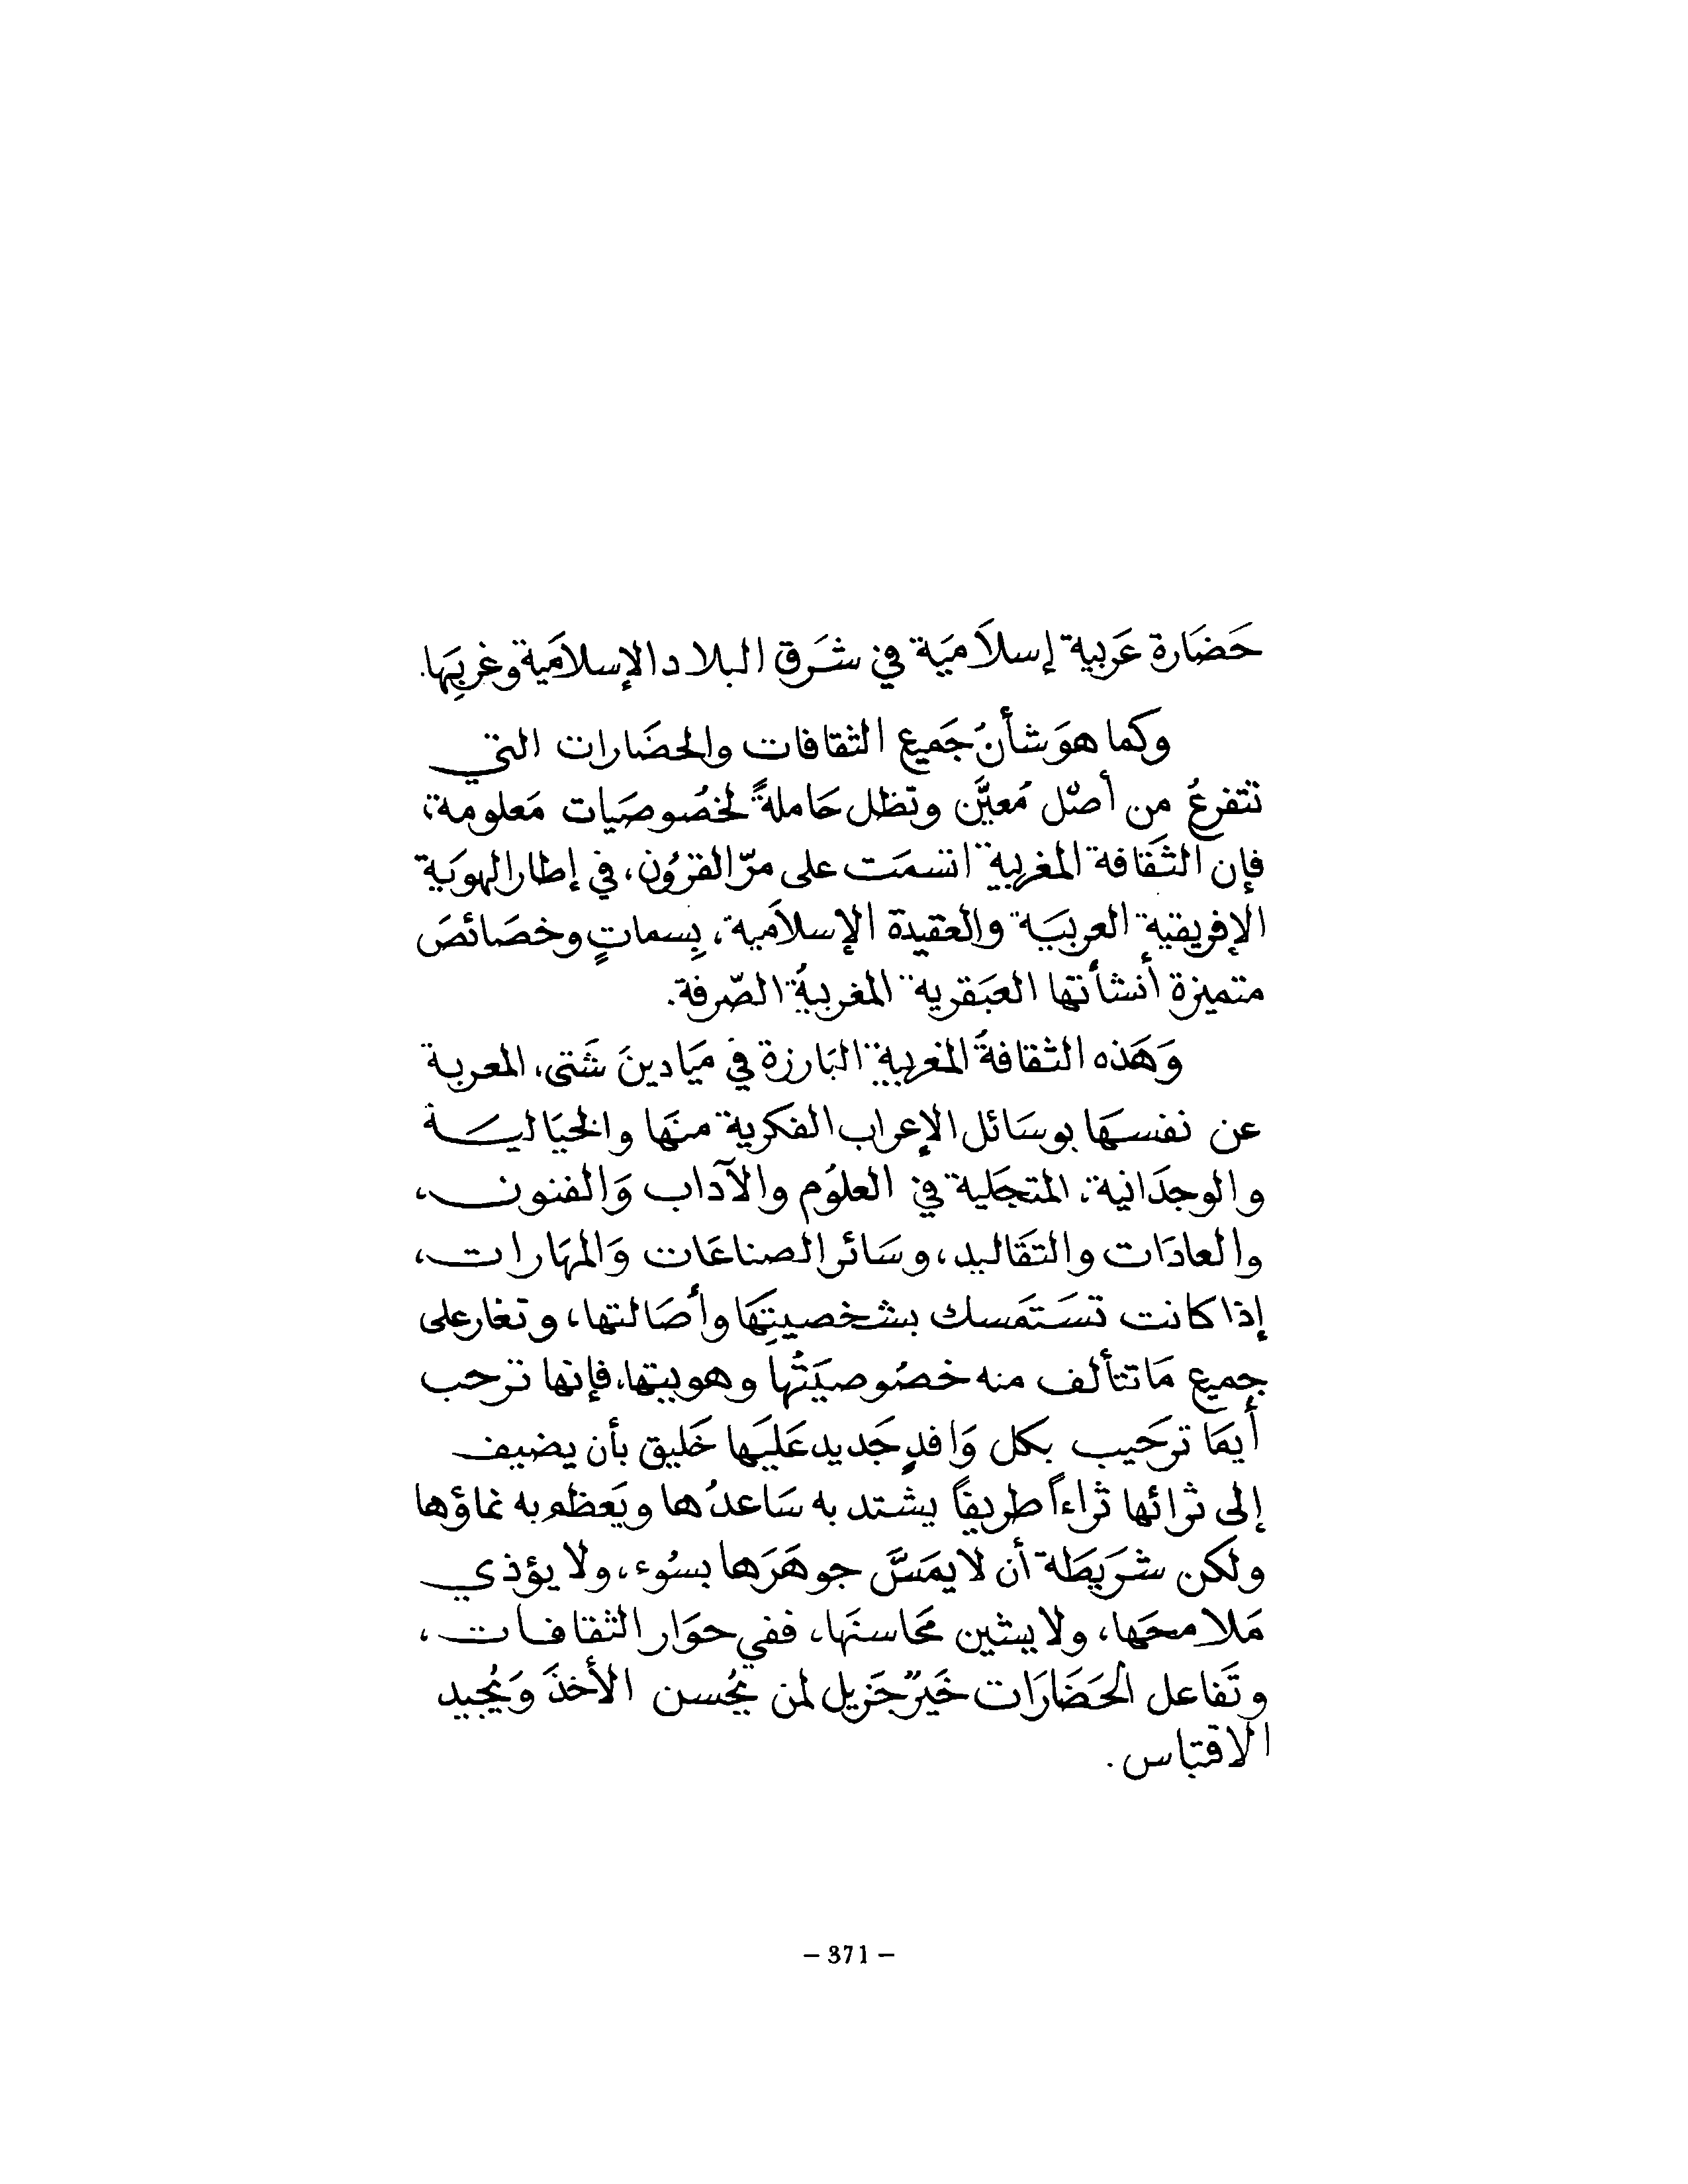 حَضَارة عَربية إسلاَميَة في شَرق البلاد الإسلاَمية وغربِهَا.
وكما هوَ شأنُ جَميع الثقافات والحضَارات التي
تتفرعُ من أصل مُعيَّن وتظل حَاملةً لخصُوصيَات مَعلومة،
فإن الثقَافة المغربية اتسمَت على مرّ القرُون، في إطار الهويَة
الإفريقية العربيَة والعقيدة الإسلاَمية، بِسماتٍ وخصَائصَ
متميزة أنشأتها العبَقرية المغربيةُ الصّرفة.
وَهَذه الثقافةُ المغربية البَارزة في ميَادينَ شَتى، المعربة
عن نفسهَا بوسَائل الإعراب الفكرية منهَا والخيَالية
والوجدَانية، المتجَلية في العلوُم والآداب وَالفنون،
والعادَات والتقَاليد، وسَائر الصناعَات وَالمهَارات،
إذا كانت تسَتمَسك بشخصيتِهَا وأصَالتها، وتغار على
جميع مَا تتألف منه خصُوصيَتُها وهويتها، فإنها ترحب
أيمَا ترحَيب بكل وَافدٍ جَديد عَليَها خَليق بأن يضيف
إلى ثرائها ثراءاً طريفاً يشتد به سَاعدُها ويَعظم به نماؤها
ولكن شرَيطَة أن لا يمَسَّ جوهَرَها بسُوء، ولا يؤذي
مَلامحَها، ولا يشين محَاسنهَا، ففي حوَار الثقافات،
وتَفاعل الحَضَارَات خَيرٌ جَزيل لمن يحُسن الأخذَ وَيجُيد
الاقتباس.
- 371 -